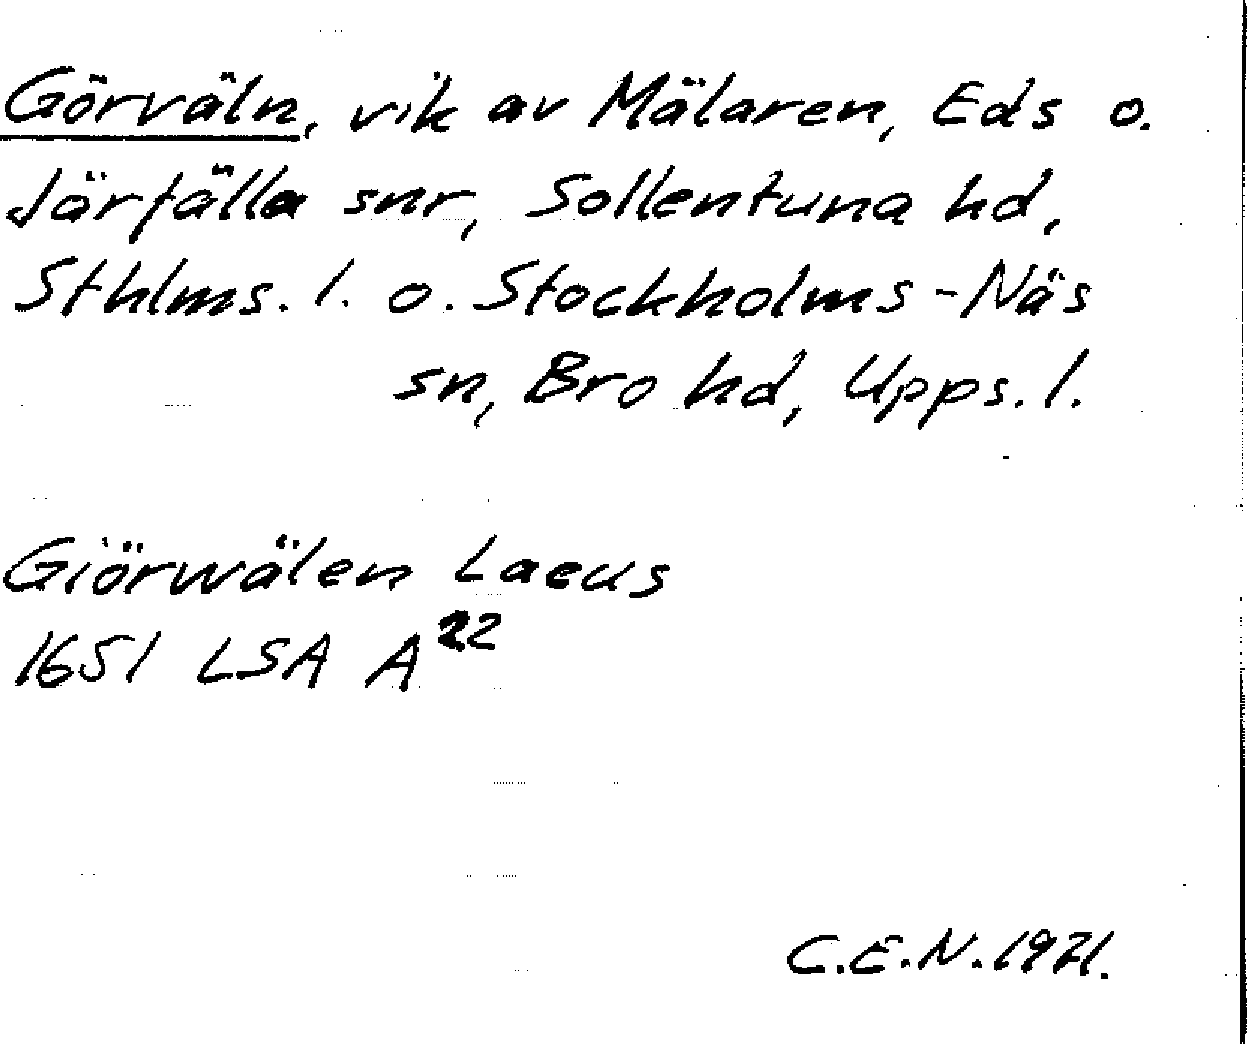 Görväln, vik av Mälaren, Eds o.
Järfälla snr, Sollentuna hd,
Sthlms. l. o. Stockholms-Näs
sn, Bro hd, Upps. l.
Giörwälen Lacus
1651 LSA A²²
C.E.N. 1971.